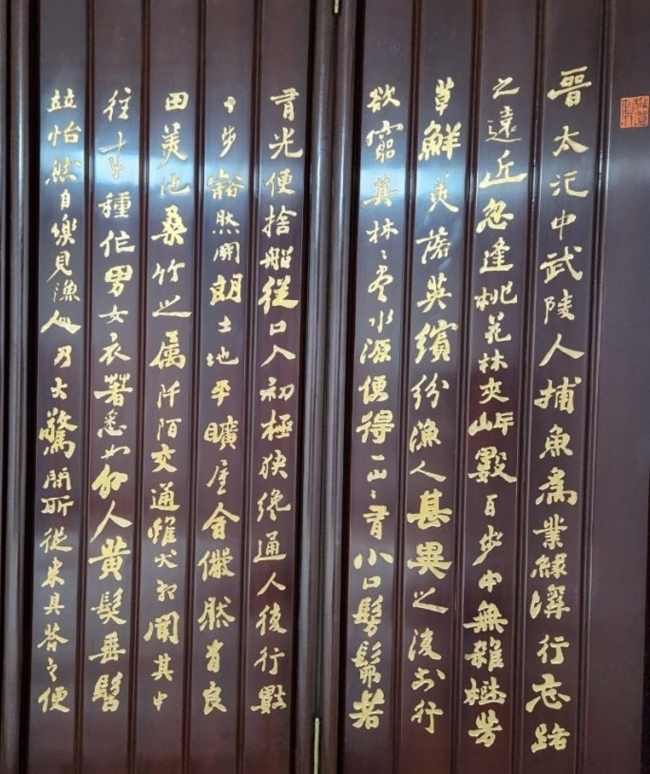 晉太元中武陵人捕魚為業緣溪行忘路
之遠近忽逢桃花林夾岸數百步中無雜樹芳
草鮮美落英繽紛漁人甚異之復前行
欲窮其林〻盡水源便得一山〻有小口髣髴若
有光便捨船從口入初極狹纔通人復行數
十步豁然開朗土地平曠屋舍儼然有良
田美池桑竹之屬阡陌交通雞犬相聞其中
往來種作男女衣著悉如外人黃髮垂髫
竝怡然自樂見漁人乃大驚問所從來具答之便